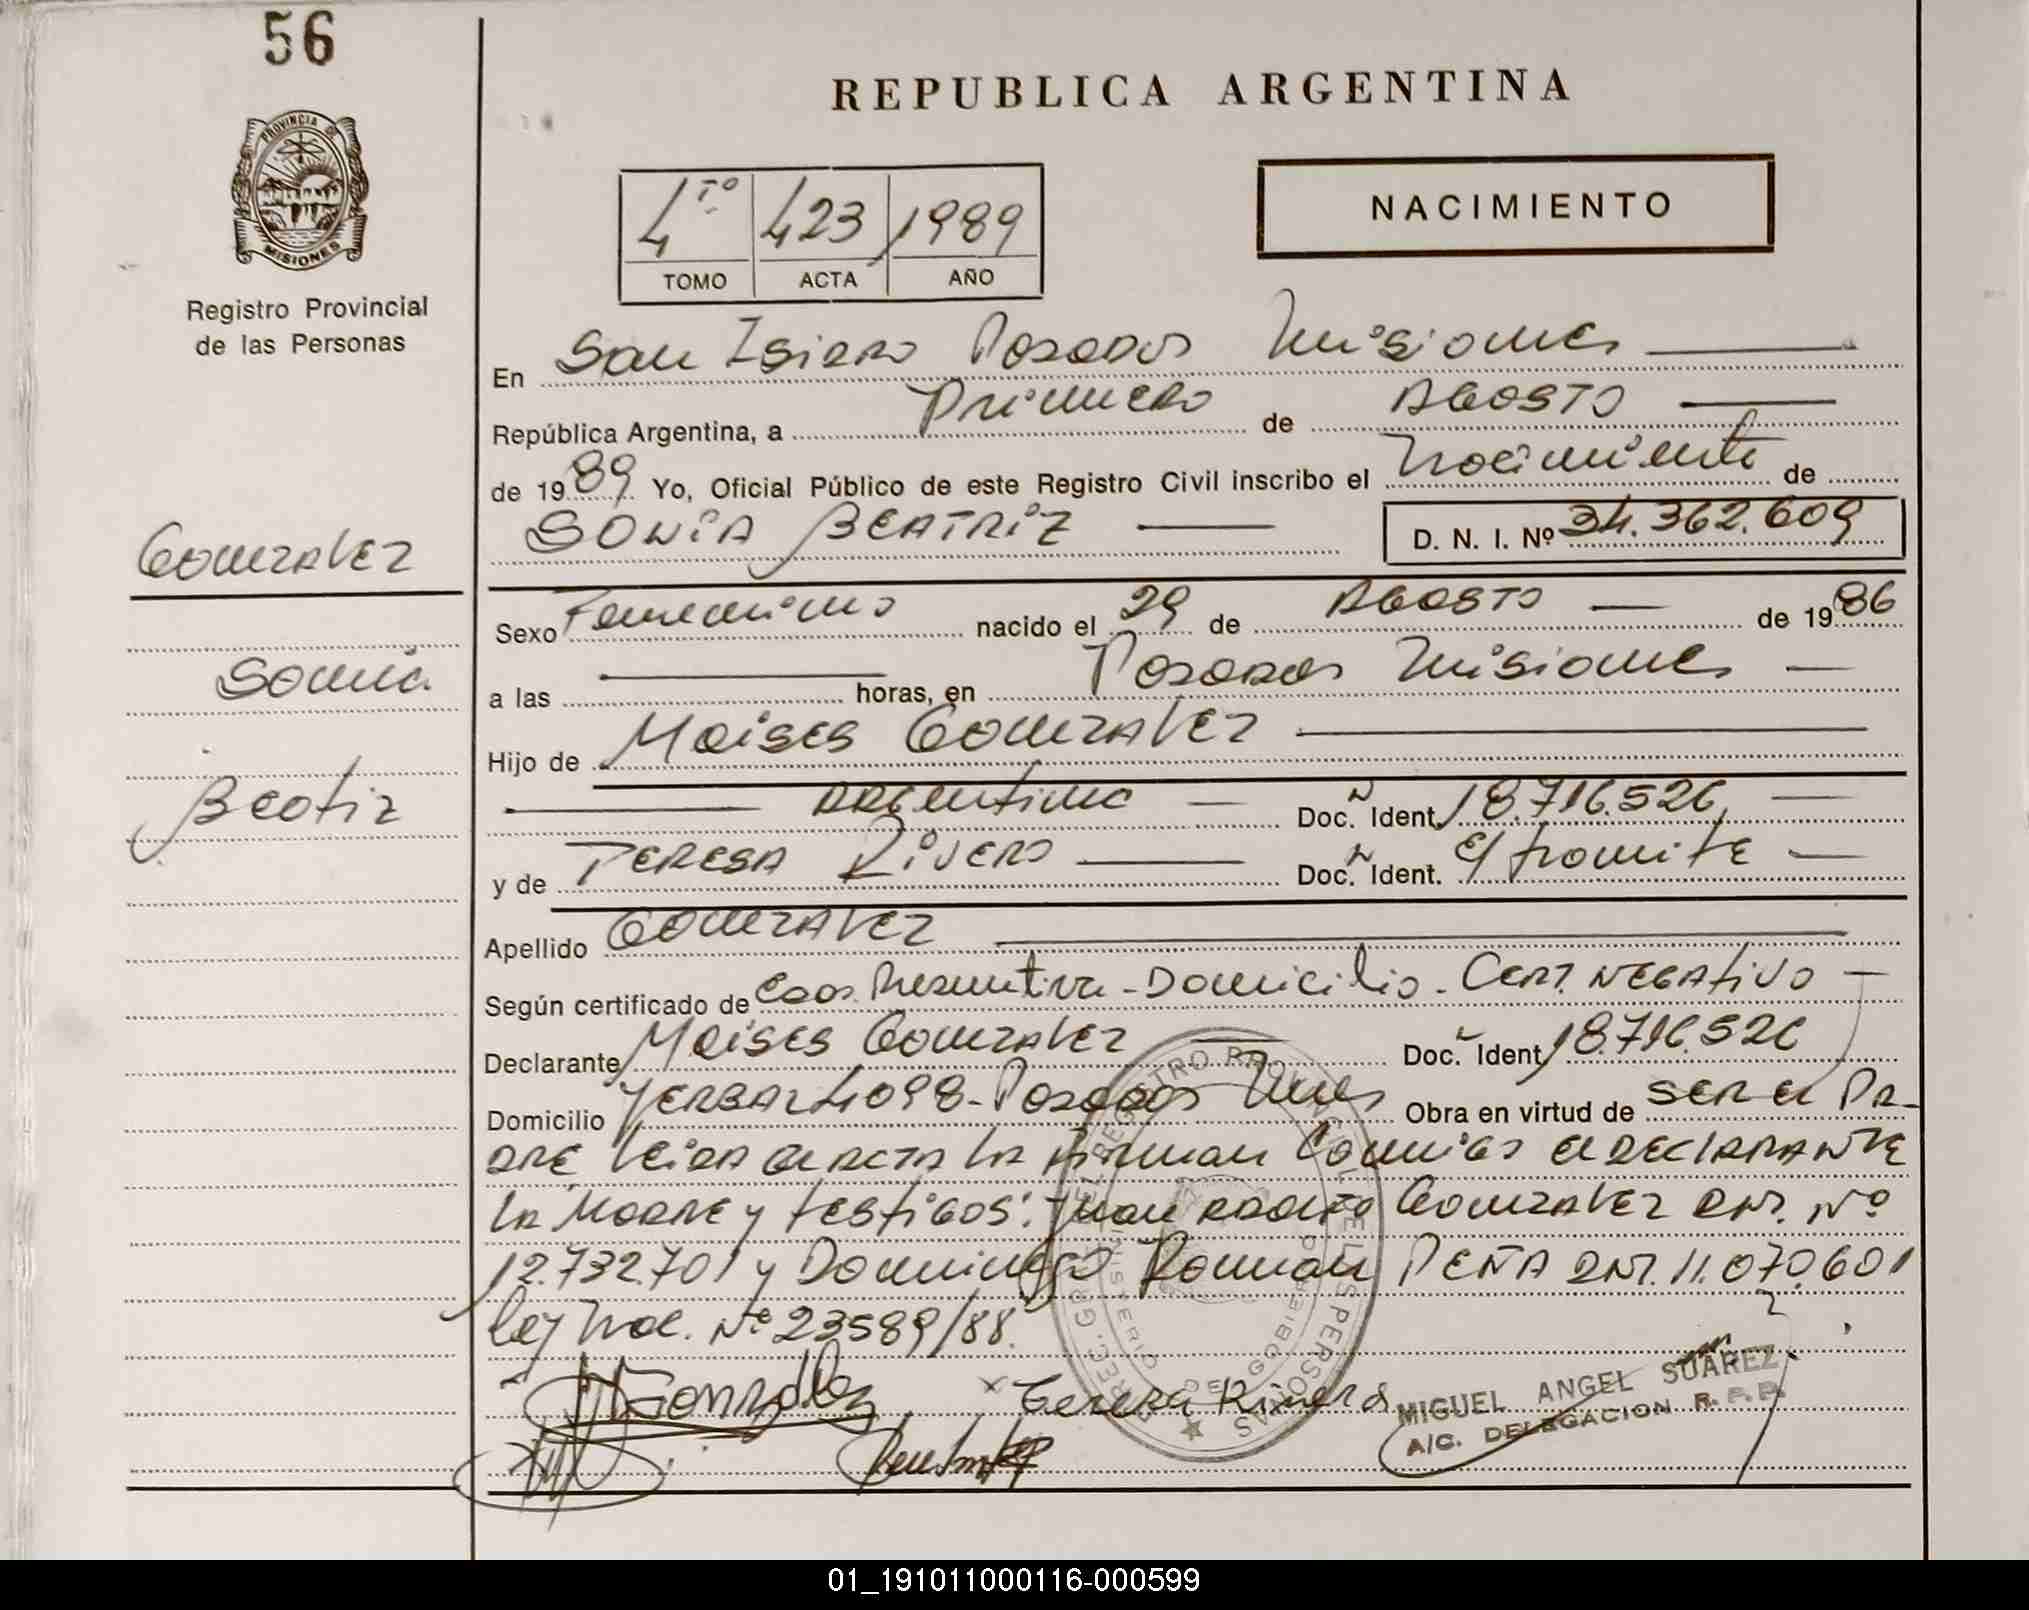 56
REPUBLICA ARGENTINA
PROVINCIA DE MISIONES
Registro Provincial
de las Personas
4to 423 1989
TOMO ACTA AÑO
NACIMIENTO
En San Isidro Posadas Misiones
República Argentina, a Primero de Agosto
de 1989 Yo, Oficial Público de este Registro Civil inscribo el Nacimiento de
SONIA BEATRIZ D. N. I. Nº 34.362.609
Gonzalez
Sonia
Beatriz
Sexo Femenino nacido el 29 de Agosto de 1986
a las horas, en Posadas Misiones
Hijo de Moises Gonzalez
Argentino Doc. Ident. 18.716.526
y de Teresa Rivero Doc. Ident. E/ tramite
Apellido Gonzalez
Según certificado de Presuntiva - Domicilio - Cert. Negativo
Declarante Moises Gonzalez Doc. Ident. 18.716.526
Domicilio Posadas Mnes Obra en virtud de ser el Pa-
dre leida el acta la firman Conmigo el declarante
la Madre y testigos: Juan Gonzalez DNI. Nº
12.732.701 y Domingo Roman PEÑA DNI. 11.070.601
Ley Nac. Nº 23589/88.
Gonzalez Tereza Rivero
MIGUEL ANGEL SUAREZ
A/C. DELEGACION R. P. P.
01_191011000116-000599